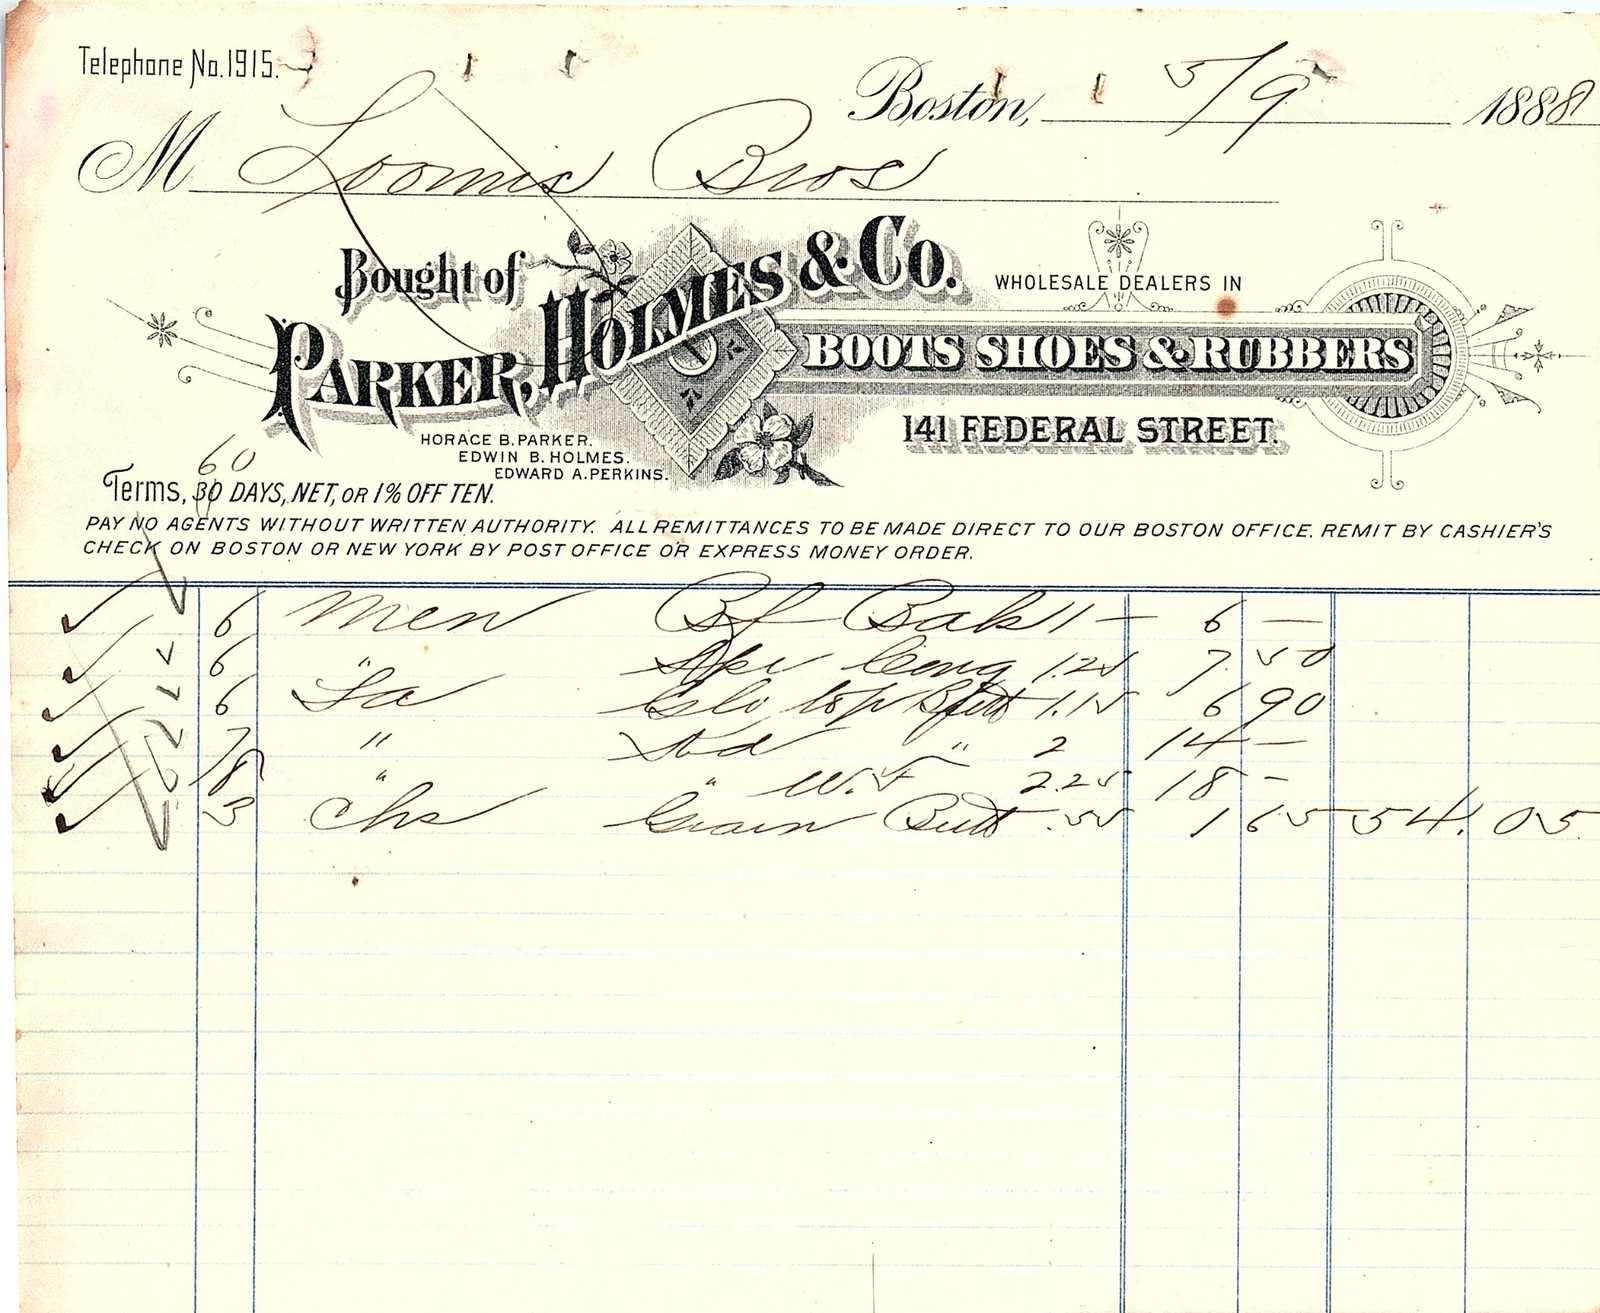 Telephone No. 1915.
Boston, 5/9 1888
M Loomis Bros
Bought of
PARKER, HOLMES & CO.
WHOLESALE DEALERS IN
BOOTS SHOES & RUBBERS
141 FEDERAL STREET.
HORACE B. PARKER.
EDWIN B. HOLMES.
EDWARD A. PERKINS.
60
Terms, 30 DAYS, NET, OR 1% OFF TEN.
PAY NO AGENTS WITHOUT WRITTEN AUTHORITY. ALL REMITTANCES TO BE MADE DIRECT TO OUR BOSTON OFFICE. REMIT BY CASHIER'S
CHECK ON BOSTON OR NEW YORK BY POST OFFICE OR EXPRESS MONEY ORDER.
6 Men Bf 1 — 6 —
6 " Cong 1.25 7.50
6 La Glo top Butt 1.15 6 90
7 " " 2 14 —
8 " " 2.25 18 —
3 Chs Grain Butt .55 1 65 54.05